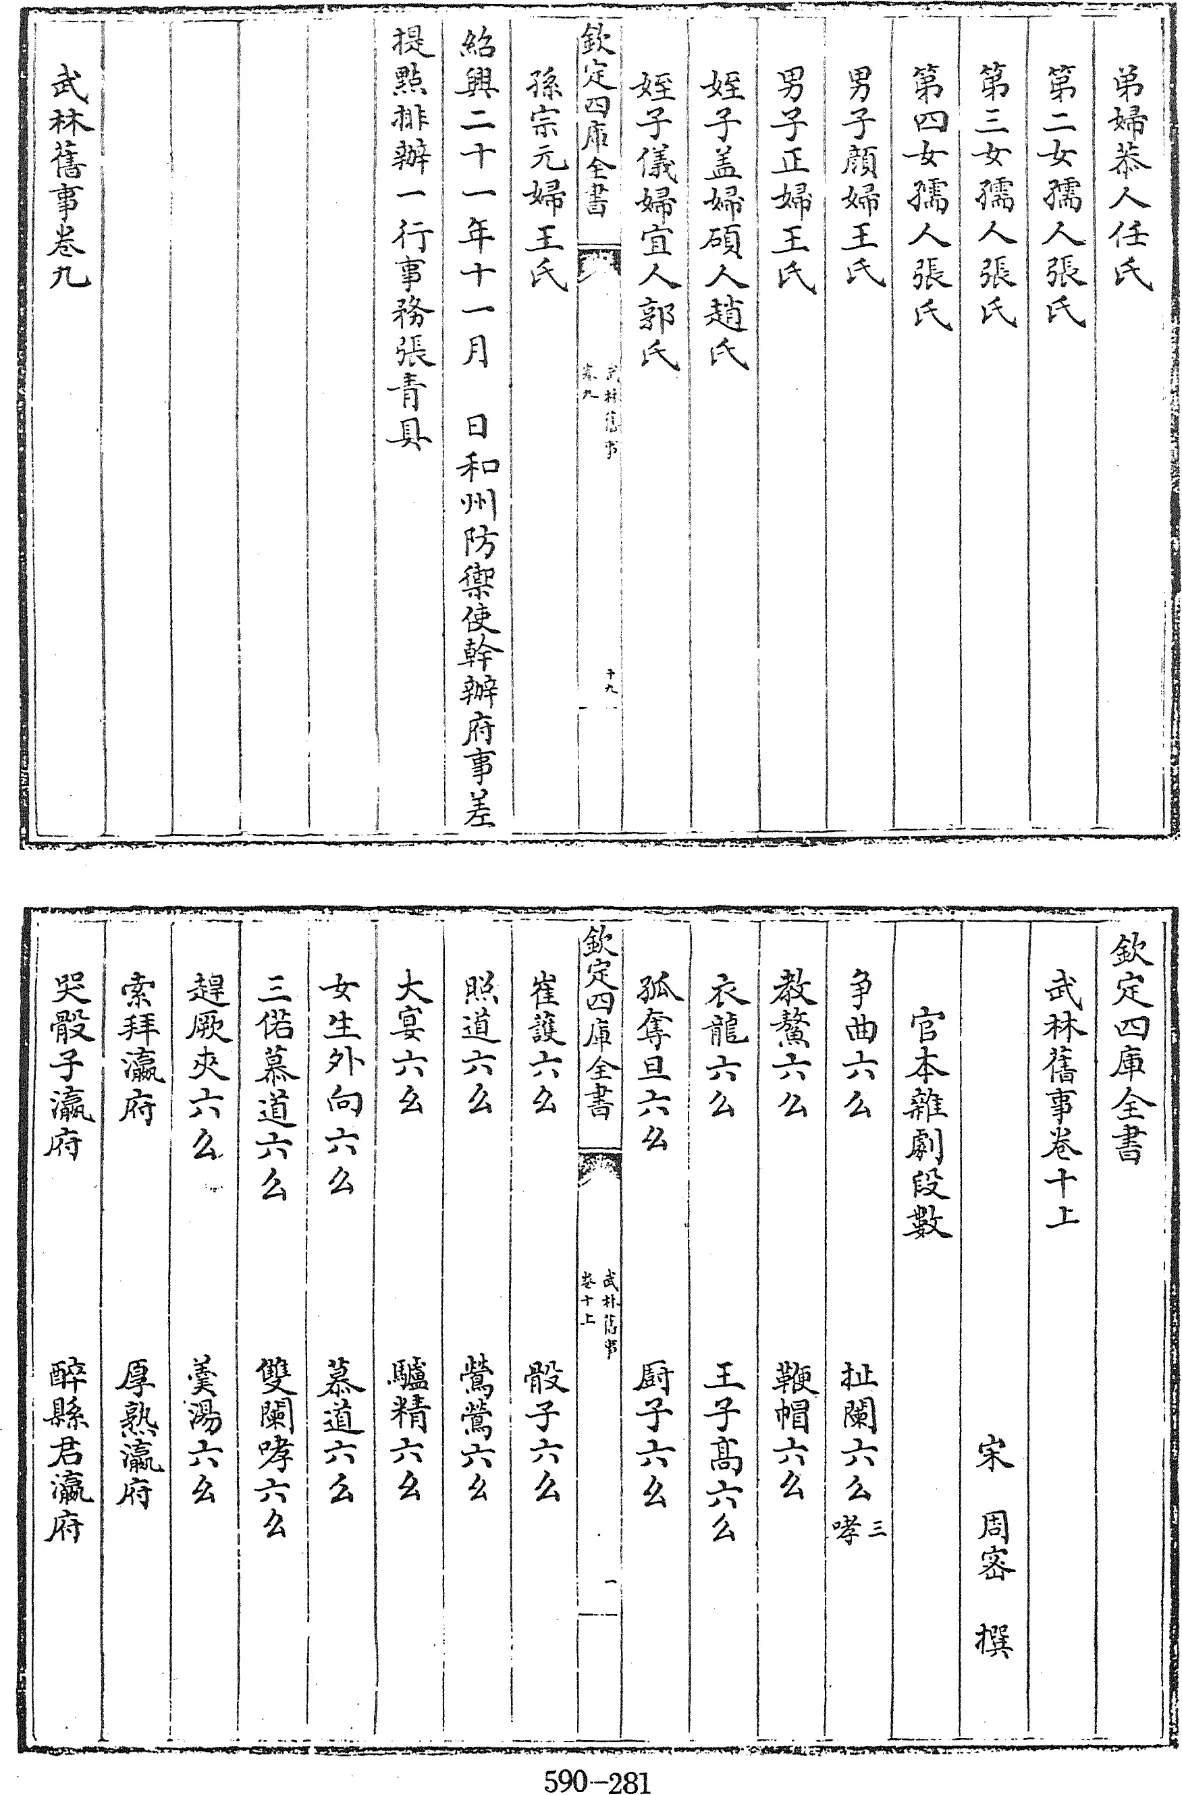 弟婦恭人任氏
第二女孺人張氏
第三女孺人張氏
第四女孺人張氏
男子顔婦王氏
男子正婦王氏
姪子盖婦碩人趙氏
姪子儀婦宜人郭氏
欽定四庫全書
武林舊事
卷九
十九
孫宗元婦王氏
紹興二十一年十一月　日和州防禦使幹辦府事差
提點排辦一行事務張青具
武林舊事卷九
欽定四庫全書
武林舊事卷十上
宋　周密　撰
官本雜劇段數
争曲六么　扯闌六么三哮
教鰲六么　鞭帽六么
衣龍六么　王子高六么
孤奪旦六么　厨子六么
欽定四庫全書
武林舊事
卷十上
一
崔護六么　骰子六么
照道六么　鶯鶯六么
大宴六么　驢精六么
女生外向六么　慕道六么
三偌慕道六么　雙闌哮六么
趕厥夾六么　羹湯六么
索拜瀛府　厚熟瀛府
哭骰子瀛府　醉縣君瀛府
590-281